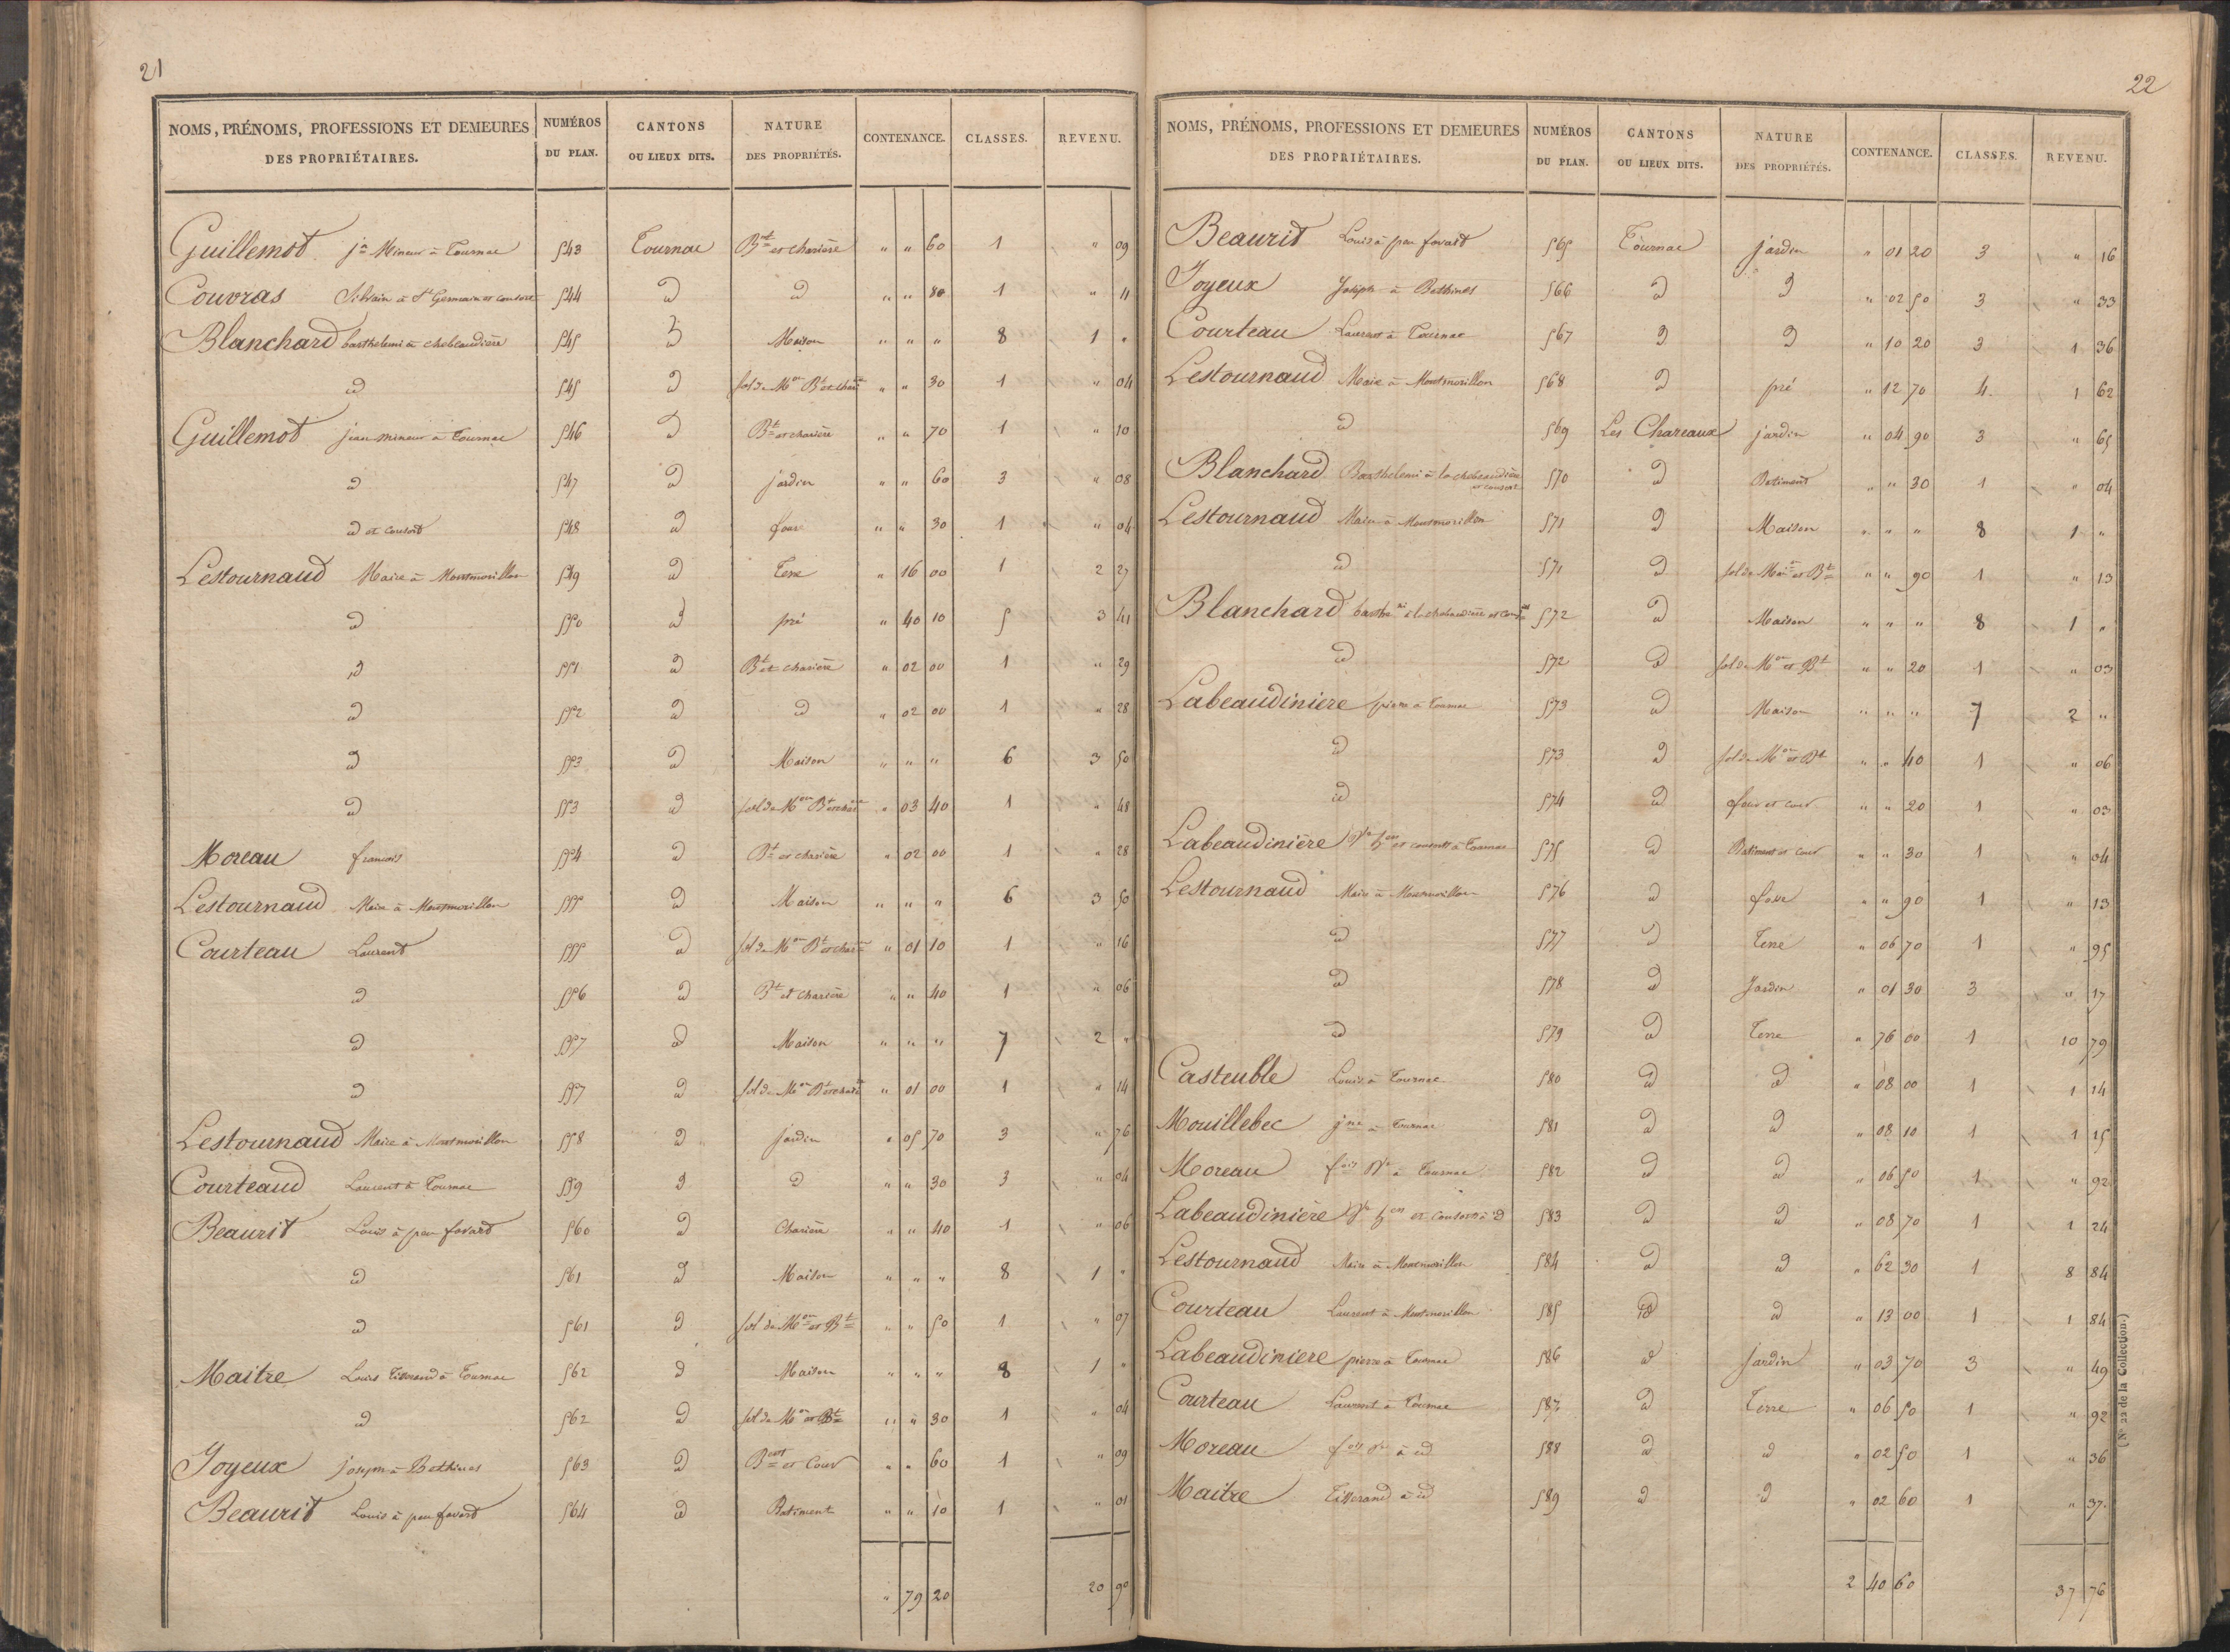 21
NOMS, PRÉNOMS, PROFESSIONS ET DEMEURES DES PROPRIÉTAIRES. NUMÉROS DU PLAN. CANTONS OU LIEUX DITS. NATURE DES PROPRIÉTÉS. CONTENANCE. CLASSES. REVENU.
Guillemot jn Mineur à Tournac 543 Tournac Bt et charière " " 60 1 " 09
Couvras Silvain à St Germain et consort 544 id id " " 80 1 " 11
Blanchard barthelemi à chebeaudière 545 id Maison " " " 8 1 "
id 545 id sol de Mon Bt et char " " 30 1 " 04
Guillemot jean mineur à Tournac 546 id Bt et charière " " 70 1 " 10
id 547 id jardin " " 60 3 " 08
id et consort 548 id four " " 30 1 " 04
Lestournaud Maire à Montmorillon 549 id Terre " 16 00 1 2 27
id 550 id pré " 40 10 5 3 41
id 551 id Bt et charière " 02 00 1 " 29
id 552 id id " 02 00 1 " 28
id 553 id Maison " " " 6 3 50
id 553 id sol de Mon Bt et char " 03 40 1 " 48
Moreau francois 554 id Bt et charière " 02 00 1 " 28
Lestournaud Maire à Montmorillon 555 id Maison " " " 6 3 50
Courteau Laurend 555 id sol de Mon Bt et char " 01 10 1 " 16
id 556 id Bt et charière " " 40 1 " 06
id 557 id Maison " " " 7 2 "
id 557 id sol de Mon Bt et char " 01 00 1 " 14
Lestournaud Maire à Montmorillon 558 id jardin " 05 70 3 " 76
Courteaud Laurent à Tournac 559 id id " " 30 3 " 04
Beaurit Louis à peu favard 560 id Charière " " 40 1 " 06
id 561 id Maison " " " 8 1 "
id 561 id sol de Mon et Bt " " 50 1 " 07
Maitre Louis Tisserand à Tournac 562 id Maison " " " 8 1 "
id 562 id sol de Mon et Bt " " 30 1 " 04
Joyeux joseph à Bethines 563 id Bent et Cour " " 60 1 " 09
Beaurit Louis à peu favard 564 id Batiment " " 10 1 " 01
" 79 20 20 90
22
NOMS, PRÉNOMS, PROFESSIONS ET DEMEURES DES PROPRIÉTAIRES. NUMÉROS DU PLAN. CANTONS OU LIEUX DITS. NATURE DES PROPRIÉTÉS. CONTENANCE. CLASSES. REVENU.
Beaurit Louis à peu favard 565 Tournac jardin " 01 20 3 " 16
Joyeux Joseph à Bethines 566 id id " 02 50 3 " 33
Courteau Laurent à Tournac 567 id id " 10 20 3 1 36
Lestournaud Maire à Montmorillon 568 id pré " 12 70 4 1 62
id 569 Les Chareaux jardin " 04 90 3 " 65
Blanchard Barthelemi à la chebeaudière et consort 570 id Batiment " " 30 1 " 04
Lestournaud Maire à Montmorillon 571 id Maison " " " 8 1 "
id 571 id sol de Mon et Bt " " 90 1 " 13
Blanchard barthemi à la chebeaudière et consort 572 id Maison " " " 8 1 "
id 572 id sol de Mon et Bt " " 20 1 " 03
Labeaudiniere pierre à Tournac 573 id Maison " " " 7 2 "
id 573 id sol de Mon et Bt " " 40 1 " 06
id 574 id four et cour " " 20 1 " 03
Labeaudinière Ve et consorts à Tournac 575 id Batiment et cour " " 30 1 " 04
Lestournaud Maire à Montmorillon 576 id fosse " " 90 1 " 13
id 577 id Terre " 06 70 1 " 95
id 578 id Jardin " 01 30 3 " 17
id 579 id Terre " 76 00 1 10 79
Casteuble Louis à Tournac 580 id id " 08 00 1 1 14
Mouillebec jne à Tournac 581 id id " 08 10 1 1 15
Moreau fois Ve à Tournac 582 id id " 06 50 1 " 92
Labeaudinière Ve et consorts à id 583 id id " 08 70 1 1 24
Lestournaud Maire à Montmorillon 584 id id " 62 30 1 8 84
Courteau Laurent à Montmorillon 585 id id " 13 00 1 1 84
Labeaudiniere pierre à Tournac 586 id Jardin " 03 70 3 " 49
Courteau Laurent à Tournac 587 id Terre " 06 50 1 " 92
Moreau fois Ve à id 588 id id " 02 50 1 " 36
Maitre Tisserand à id 589 id id " 02 60 1 " 37
2 40 60 37 76
(N° 22 de la Collection.)